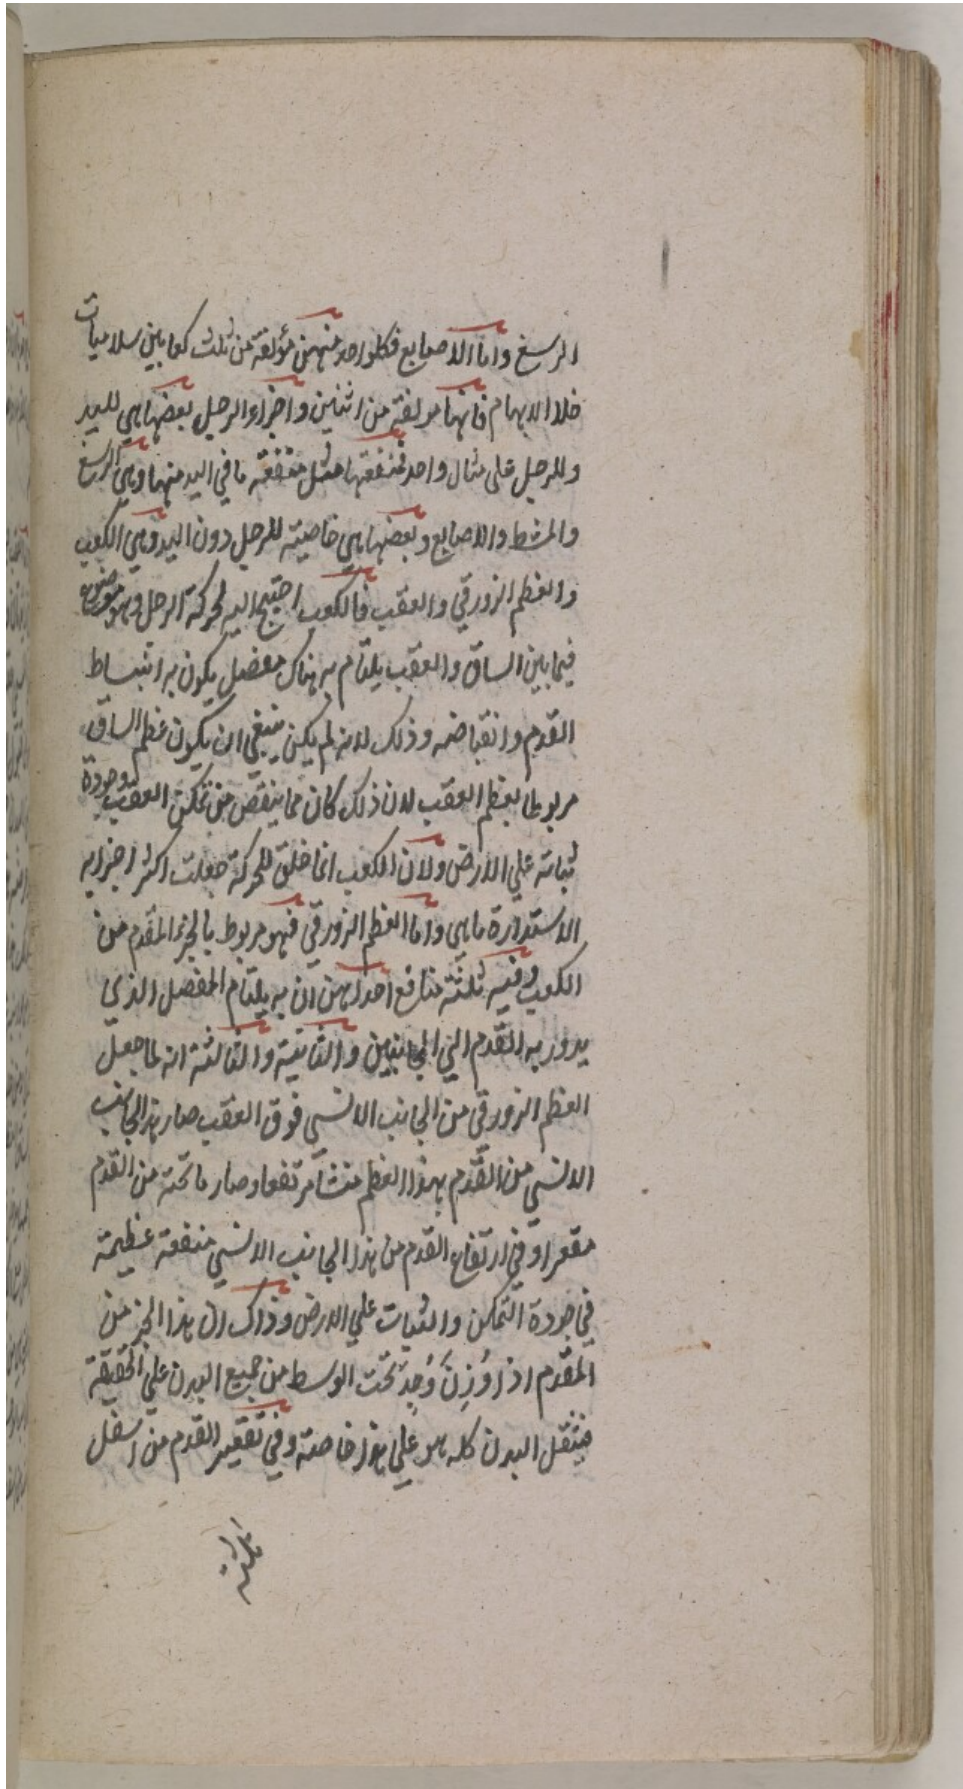 الرسغ واما الاصابع فكلواحد منهن مؤلفة من ثلث كعابين سلاميات
خلا الابهام فانها مولفة من اثنين واجزاء الرجل بعضها هي لليد
وللرجل على مثال واحد فمنفعتها مثل منفعة ما في اليد منها وهي الرسغ
والمشط والاصابع وبعضها هي خاصية للرجل دون اليد وهي الكعب
والعظم الزورقي والعقب فالكعب احتيج اليه لحركة الرجل وهو موضوع
فيما بين الساق والعقب يلتام به هناك مفصل يكون به انبساط
القدم وانقباضه وذلك لانه لم يكن ينبغي ان يكون عظم الساق
مربوطا بعظم العقب لان ذلك كان مما ينقص من تمكن العقب وجودة
ثباته علي الارض ولان الكعب انما خلق للحركة جعلت اكثر اجزايه
الاستدارة ماهي واما العظم الزورقي فهو مربوط بالجزء المقدم من
الكعب وفيه ثلثة منافع احداهن ان به يلتام المفصل الذي
يدور به القدم الي الجانبين والثانية والثالثة انه لما جعل
العظم الزورقي من الجانب الانسي فوق العقب صار هذا الجانب
الانسي من القدم بهذا العظم منشا مرتفعا وصار ما تحته من القدم
مقعرا وفي ارتفاع القدم من هذا الجانب الانسي منفعة عظيمة
في جودة التمكن والثبات علي الارض وذاك ان هذا الجزء من
المقدم اذا وُزِنَ وُجِدَ تحت الوسط من جميع البدن علي الحقيقة
فثقل البدن كله هو علي هذا خاصة وفي تقعير القدم من اسفل